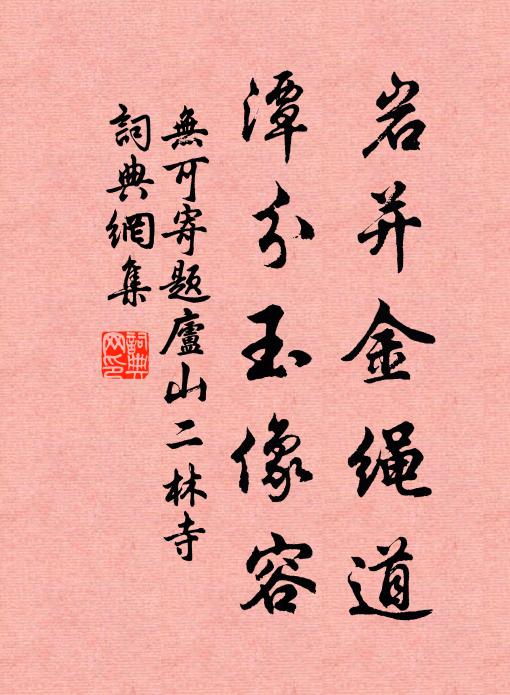 岩并金绳道
潭分玉像容
無可寄题廬山二林寺
詞典網集
詞典网印